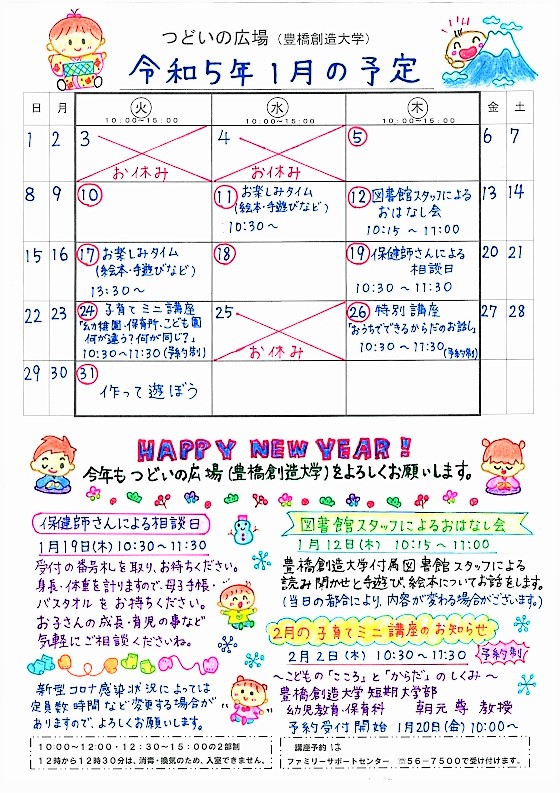 つどいの広場（豊橋創造大学）
令和5年1月の予定
日 月 火 水 木 金 土
10:00~15:00 10:00~15:00 10:00~15:00
1 2 3 4 5 6 7
お休み お休み
8 9 10 11 お楽しみタイム
(絵本・手遊びなど)
10:30~
12 図書館スタッフによる
おはなし会
10:15 ~ 11:00
13 14
15 16 17 お楽しみタイム
(絵本・手遊びなど)
13:30~
18 19 保健師さんによる
相談日
10:30 ~ 11:30
20 21
22 23 24 子育てミニ講座
「幼稚園・保育所・こども園
何が違う？何が同じ？」
10:30~11:30(予約制)
25
お休み
26 特別講座
「おうちでできるからだのお話」
10:30~11:30(予約制)
27 28
29 30 31
作って遊ぼう
HAPPY NEW YEAR!
今年もつどいの広場(豊橋創造大学)をよろしくお願いします。
保健師さんによる相談日
1月19日(木) 10:30~11:30
受付の番号札を取り、お待ちください。
身長・体重を計りますので、母子手帳・
バスタオルをお持ちください。
お子さんの成長・育児の事など
気軽にご相談くださいね。
新型コロナ感染状況によっては
定員数 時間など変更する場合が
ありますので、よろしくお願いします。
10:00~12:00・12:30~15:00の2部制
12時から12時30分は、消毒・換気のため、入室できません。
図書館スタッフによるおはなし会
1月12日(木) 10:15~11:00
豊橋創造大学付属図書館スタッフによる
読み聞かせと手遊び、絵本についてお話をします。
(当日の都合により、内容が変わる場合がございます。)
2月の子育てミニ講座のお知らせ
2月2日(木) 10:30~11:30 予約制
~こどもの「こころ」と「からだ」のしくみ~
豊橋創造大学短期大学部
幼児教育・保育科 朝元 尊 教授
予約受付開始 1月20日(金) 10:00~
講座予約は
ファミリーサポートセンター ☎56-7500で受け付けます。